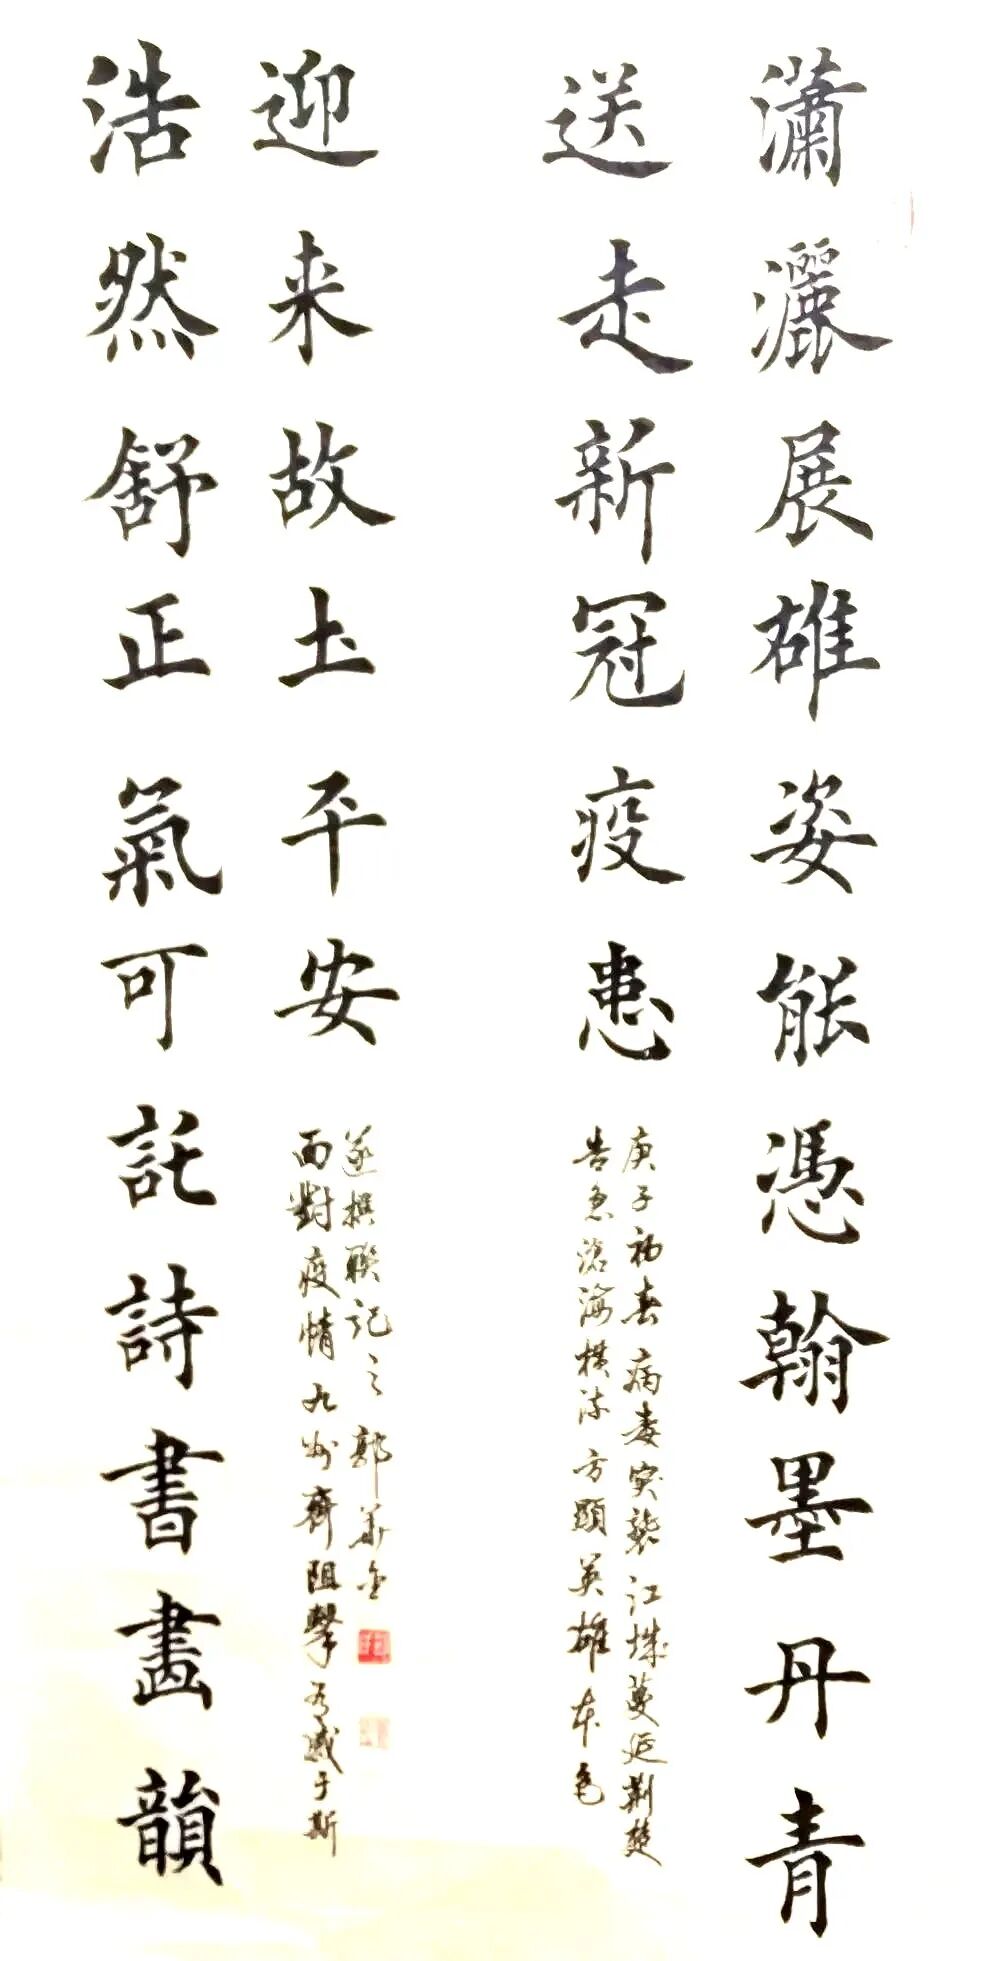 瀟灑展雄姿能憑翰墨丹青
送走新冠疫患
庚子初春病毒突襲江城蔓延荆楚
告急滄海横流方顯英雄本色
迎来故土平安
遂撰聯記之郭華
面對疫情九州齊阻擊有感于斯
浩然舒正氣可託詩書畫韻